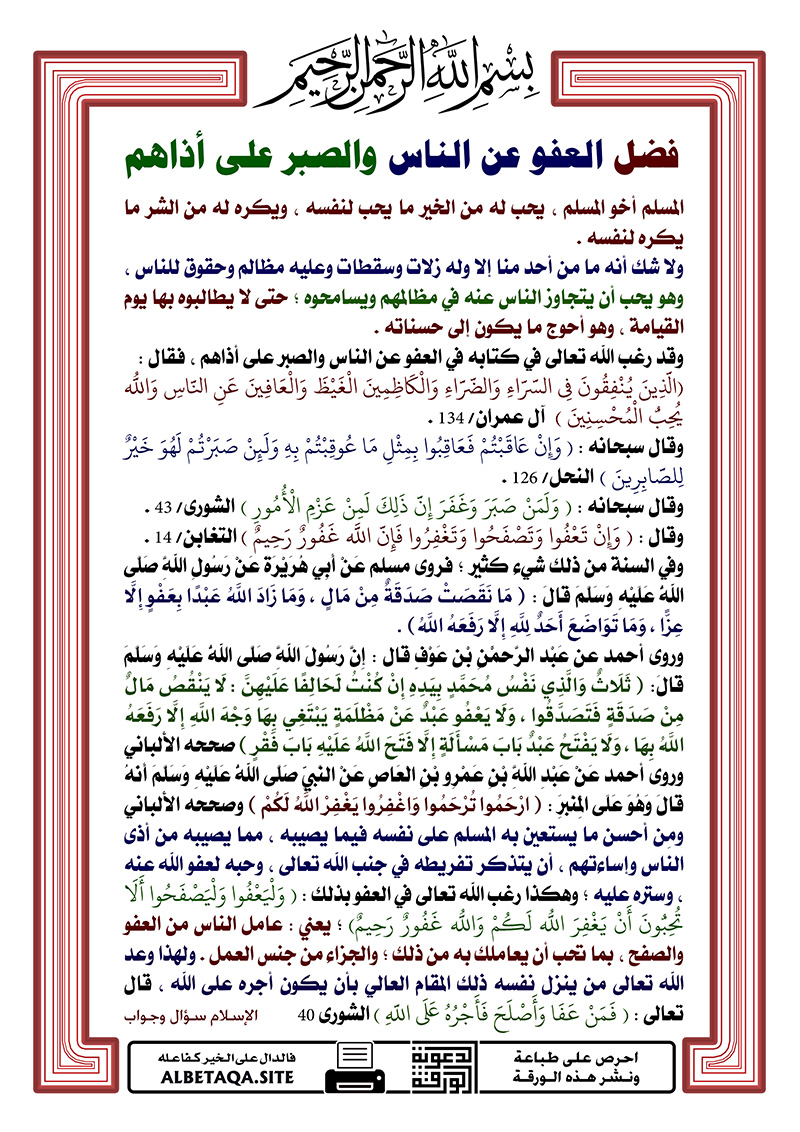 بسم الله الرحمن الرحيم
فضل العفو عن الناس والصبر على أذاهم
المسلم أخو المسلم ، يحب له من الخير ما يحب لنفسه ، ويكره له من الشر ما
يكره لنفسه .
ولا شك أنه ما من أحد منا إلا وله زلات وسقطات وعليه مظالم وحقوق للناس ،
وهو يحب أن يتجاوز الناس عنه في مظالمهم ويسامحوه ؛ حتى لا يطالبوه بها يوم
القيامة ، وهو أحوج ما يكون إلى حسناته .
وقد رغب الله تعالى في كتابه في العفو عن الناس والصبر على أذاهم ، فقال :
(الَّذِينَ يُنْفِقُونَ فِي السَّرَّاءِ وَالضَّرَّاءِ وَالْكَاظِمِينَ الْغَيْظَ وَالْعَافِينَ عَنِ النَّاسِ وَاللَّه
يُحِبُّ الْمُحْسِنِينَ ) آل عمران/ 134 .
وقال سبحانه : ( وَإِنْ عَاقَبْتُمْ فَعَاقِبُوا بِمِثْلِ مَا عُوقِبْتُمْ بِهِ وَلَئِنْ صَبَرْتُمْ لَهُوَ خَيْرٌ
لِلصَّابِرِينَ ) النحل/ 126 .
وقال سبحانه : ( وَلَمَنْ صَبَرَ وَغَفَرَ إِنَّ ذَلِكَ لَمِنْ عَزْمِ الْأُمُورِ ) الشورى/ 43 .
وقال : ( وَإِنْ تَعْفُوا وَتَصْفَحُوا وَتَغْفِرُوا فَإِنَّ اللَّه غَفُورٌ رَحِيمٌ ) التغابن/ 14 .
وفي السنة من ذلك شيء كثير ؛ فروى مسلم عَنْ أَبِي هُرَيْرَةَ عَنْ رَسُولِ اللَّهِ صَلَّى
اللَّهُ عَلَيْهِ وَسَلَّمَ قَالَ : ( مَا نَقَصَتْ صَدَقَةٌ مِنْ مَالٍ ، وَمَا زَادَ اللَّهُ عَبْدًا بِعَفْوٍ إِلَّا
عِزًّا ، وَمَا تَوَاضَعَ أَحَدٌ لِلَّهِ إِلَّا رَفَعَهُ اللَّهُ ) .
وروى أحمد عن عَبْد الرَّحْمَنِ بْن عَوْفٍ قال : إِنَّ رَسُولَ اللَّهِ صَلَّى اللَّهُ عَلَيْهِ وَسَلَّمَ
قَالَ: ( ثَلَاثٌ وَالَّذِي نَفْسُ مُحَمَّدٍ بِيَدِهِ إِنْ كُنْتُ لَحَالِفًا عَلَيْهِنَّ : لَا يَنْقُصُ مَالٌ
مِنْ صَدَقَةٍ فَتَصَدَّقُوا ، وَلَا يَعْفُو عَبْدٌ عَنْ مَظْلَمَةٍ يَبْتَغِي بِهَا وَجْهَ اللَّهِ إِلَّا رَفَعَهُ
اللَّهُ بِهَا ، وَلَا يَفْتَحُ عَبْدٌ بَابَ مَسْأَلَةٍ إِلَّا فَتَحَ اللَّهُ عَلَيْهِ بَابَ فَقْرٍ ) صححه الألباني
وروى أحمد عَنْ عَبْدِ اللَّهِ بْنِ عَمْرِو بْنِ الْعَاصِ عَنْ النبيِّ صَلَّى اللَّهُ عَلَيْهِ وَسَلَّمَ أَنَّهُ
قَالَ وَهُوَ عَلَى الْمِنْبَرِ : ( ارْحَمُوا تُرْحَمُوا وَاغْفِرُوا يَغْفِرْ اللَّهُ لَكُمْ ) وصححه الألباني
ومن أحسن ما يستعين به المسلم على نفسه فيما يصيبه ، مما يصيبه من أذى
الناس وإساءتهم ، أن يتذكر تفريطه في جنب الله تعالى ، وحبه لعفو الله عنه
، وستره عليه ؛ وهكذا رغب الله تعالى في العفو بذلك : ( وَلْيَعْفُوا وَلْيَصْفَحُوا أَلَا
تُحِبُّونَ أَنْ يَغْفِرَ اللَّه لَكُمْ وَاللَّه غَفُورٌ رَحِيمٌ) ؛ يعني : عامل الناس من العفو
والصفح ، بما تحب أن يعاملك به من ذلك ؛ والجزاء من جنس العمل . ولهذا وعد
الله تعالى من ينزل نفسه ذلك المقام العالي بأن يكون أجره على الله ، قال
تعالى : ( فَمَنْ عَفَا وَأَصْلَحَ فَأَجْرُهُ عَلَى اللَّهِ ) الشورى 40 الإسلام سؤال وجواب
احرص على طباعة
ونشر هذه الورقة
الورقة الدعوية
فالدال على الخير كفاعله
ALBETAQA.SITE